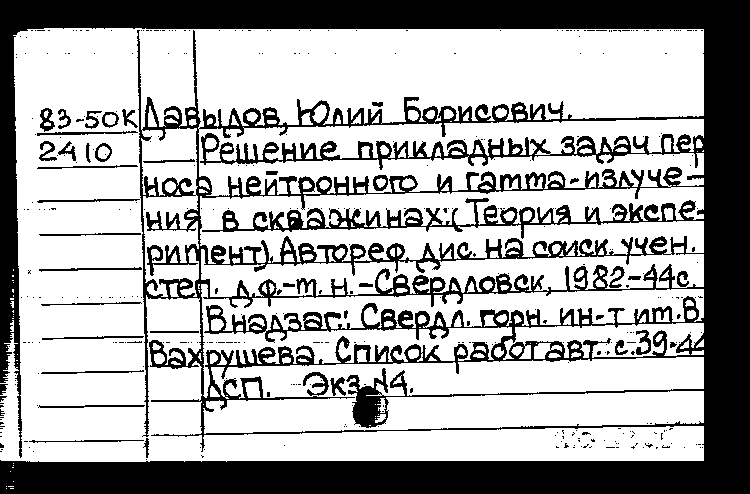 83-50К Давыдов, Юлий Борисович.
2410 Решение прикладных задач пер
носа нейтронного и гамма-излуче-
ния в скважинах: (Теория и экспе-
римент). Автореф. дис. на соиск. учен.
степ. д.ф.-м. н. -Свердловск, 1982.-44с.
В надзаг.: Свердл. горн. ин-т им. В.
Вахрушева. Список работ авт.: с.39-44
ДСП. Экз. №4.